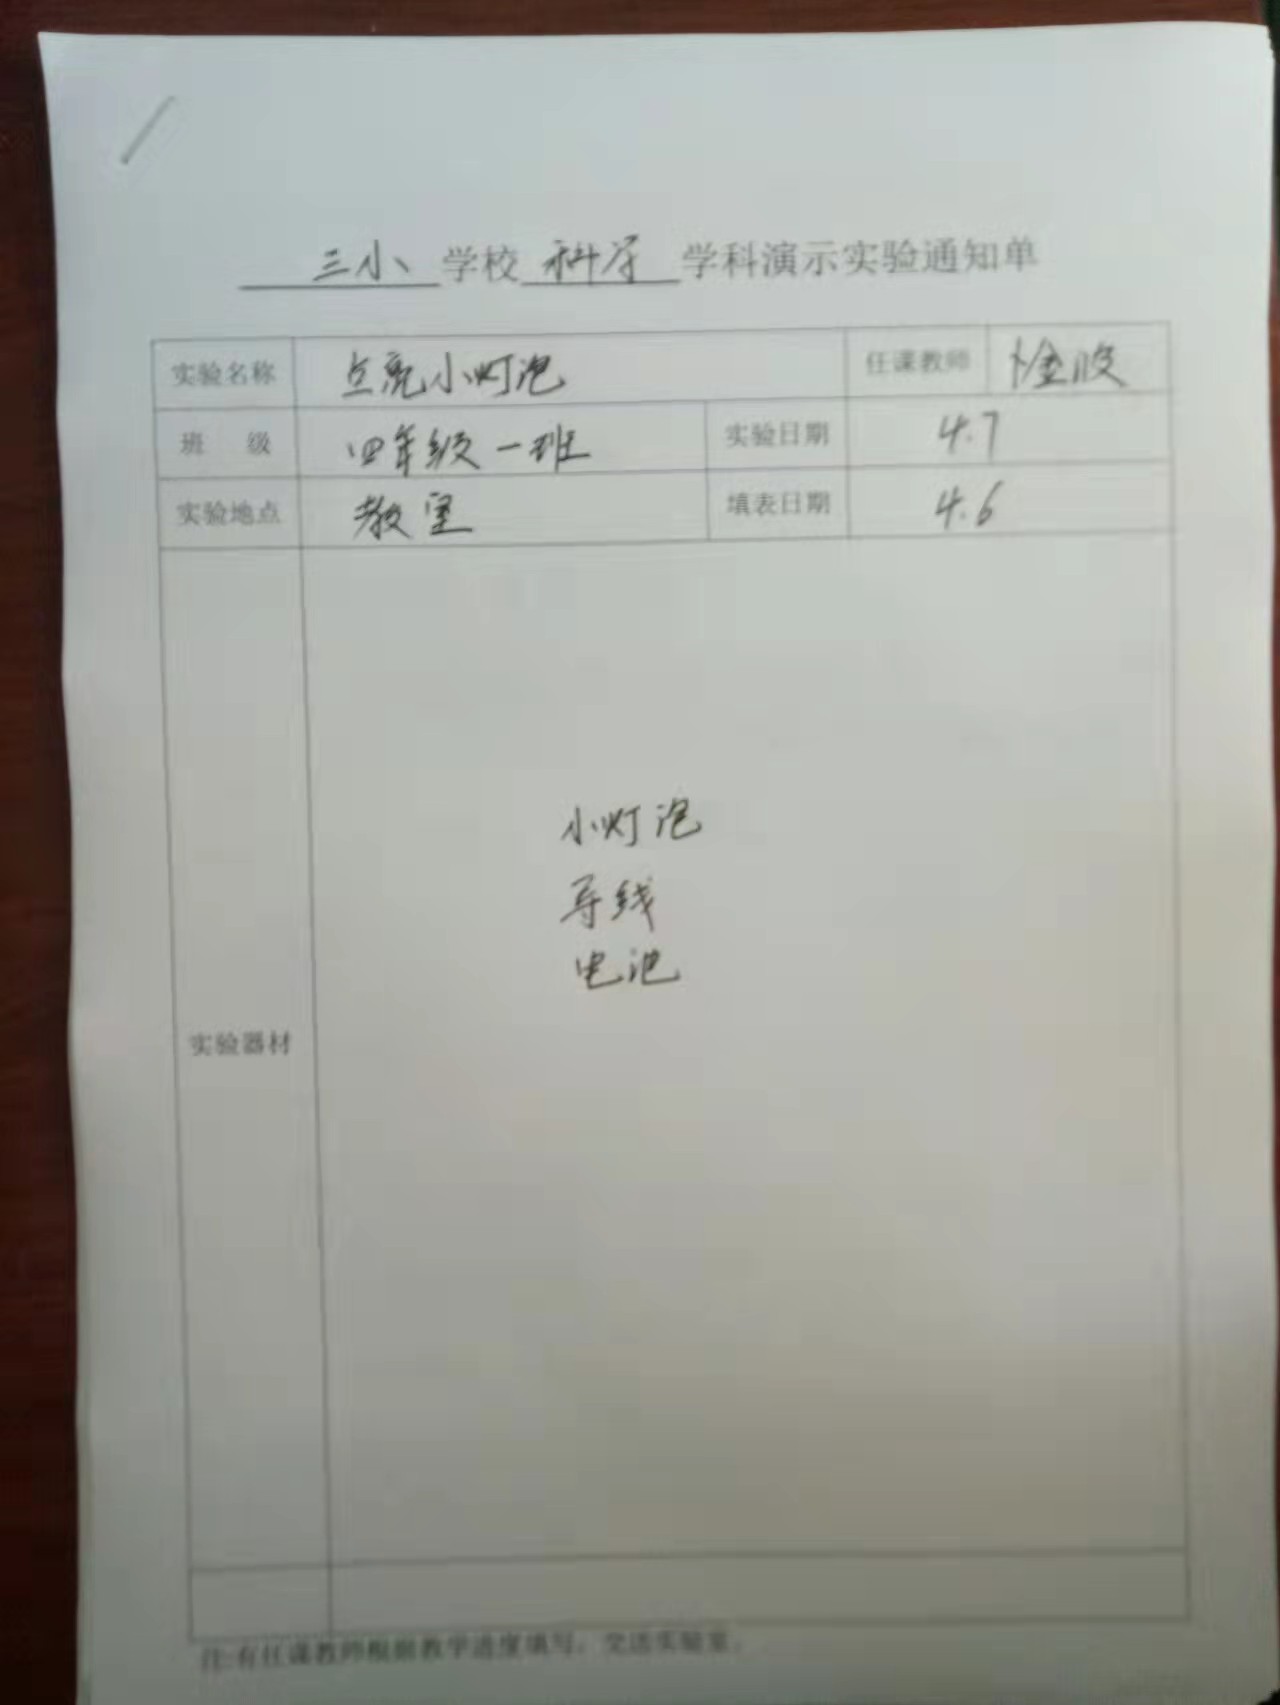 三小 学校 科学 学科演示实验通知单
实验名称 点亮小灯泡 任课教师
班 级 四年级一班 实验日期 4.7
实验地点 教室 填表日期 4.6
小灯泡
导线
电池
实验器材
注:有任课教师根据教学进度填写，交送实验室。